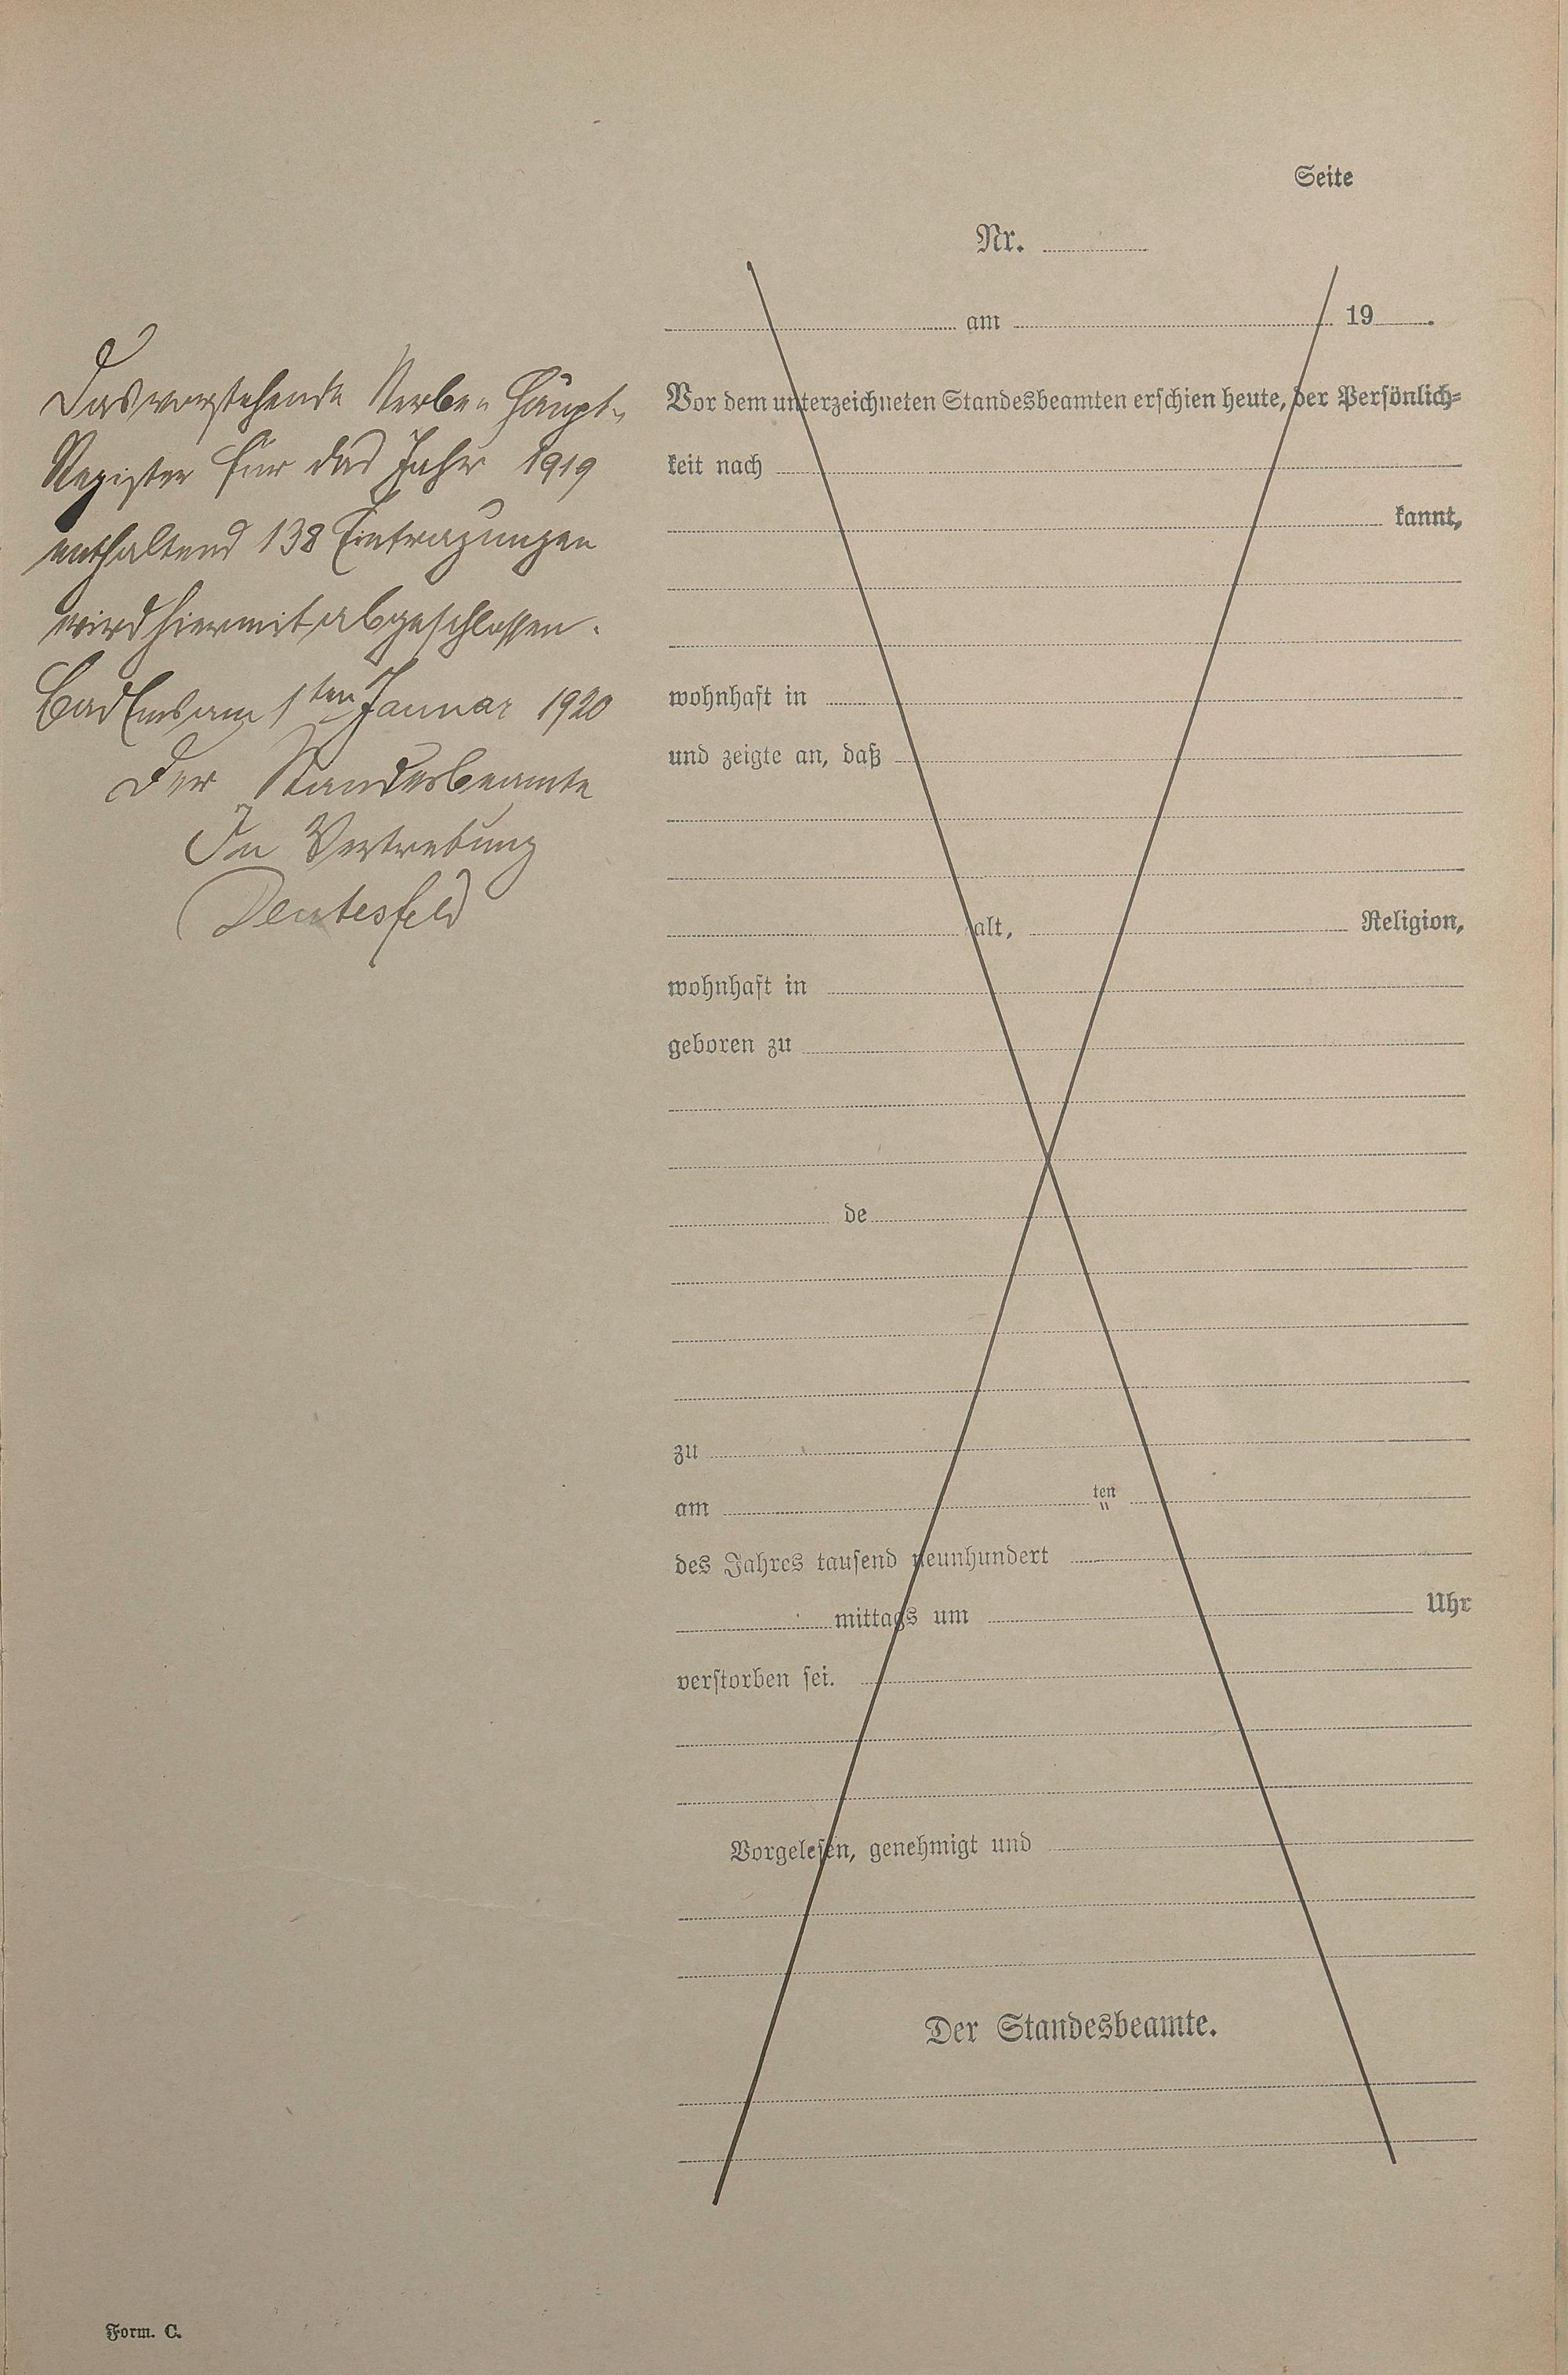 Seite
Nr.
am 19 .
Das vorstehende Sterbe-Haupt-
Register für das Jahr 1919
enthaltend 138 Eintragungen
wird hiermit abgeschlossen.
Bad Ems am 1ten Januar 1920
Der Standesbeamte
In Vertretung
Deutesfeld
Vor dem unterzeichneten Standesbeamten erschien heute, der Persönlich=
keit nach
kannt,
wohnhaft in
und zeigte an, daß
alt, Religion,
wohnhaft in
geboren zu
de
zu
am ten
des Jahres tausend neunhundert
mittags um Uhr
verstorben sei.
Vorgelesen, genehmigt und
Der Standesbeamte.
Form. C.